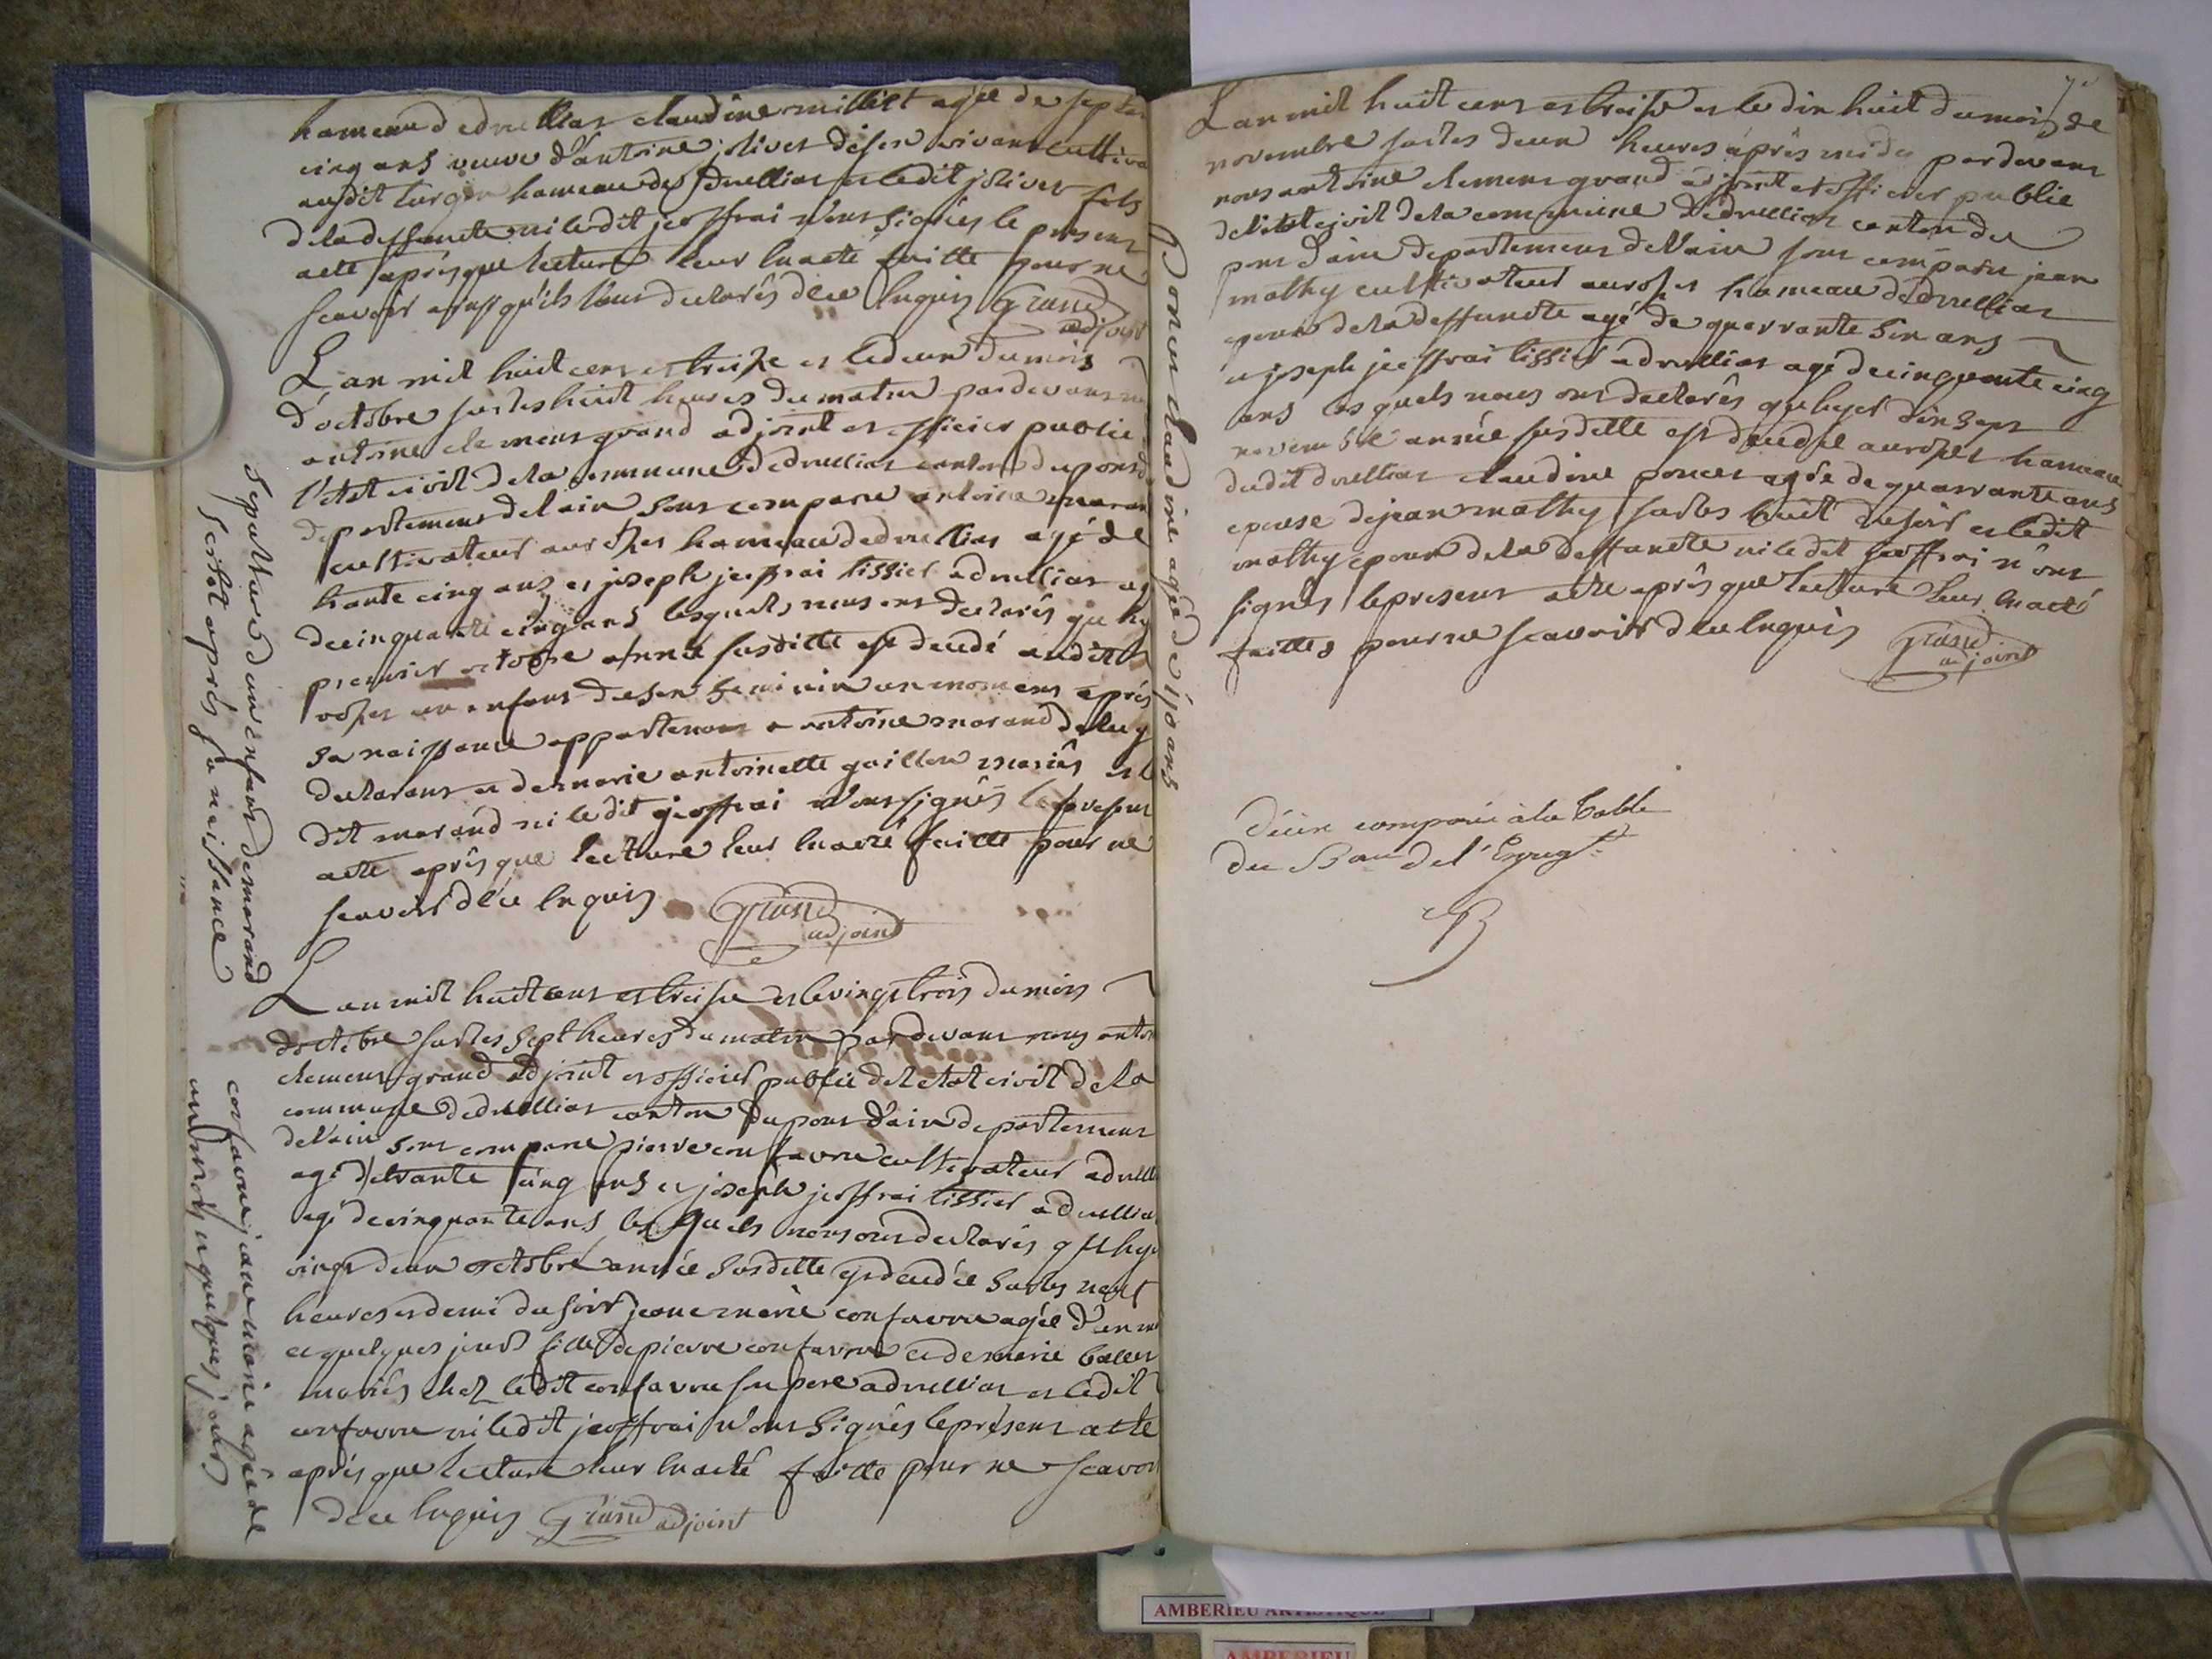 hameau dedruillias claudine milliet agée de septan
cinq ans veuve d'antoine jolivet de son vivant cultiva
audit turgon hameau de druillias et ledit jolivet fils
dela deffuncte ni ledit jeoffrai n'ont signés le present
acte après que lecture leur en a été faitte pour ne
scavoir ainssy qu'ils l'ont declarés de ce enquis Grand
adjoint
L'an mil huit cent et treize et le deux du mois
d'octobre sur les huit heures du matin pardevant
antoine clement grand adjoint et officier public
l'etat civil dela commune dedruillias canton du pont d
departement del ain sont comparu antoine maran
cultivateur aux hameau dedruillias agé de
trante cinq ans et joseph jeoffrai tissier a druillias ag
de cinquante cinq ans lesquels nous ont declarés qu'hy
premier octobre année susditte est decedé audit
un enfant du sex feminin un moment après
sa naissance appartenant a antoine morand deluy
declarant et de marie antoinette guillon mariés et le
dit morand ni ledit jeoffrai n'ont signés le present
acte après que lecture leur en a été faitte pour ne
scavoir de ce enquis Grand
adjoint
L an mil huit cent et treise et le vingt trois du mois
d'octobre sur les sept heures du matin pardevant nous antoi
clement grand adjoint et officier public del etat civil dela
commune dedruillias canton du pont d'ain departement
del'ain sont comparu pierre confavru cultivateur a druilli
agé de trante cinq ans et joseph jeoffrai tissier a druillia
agé de cinquante ans les quels nous ont declarés qu'hyer
vingt deux octobre année susditte est decedée sur les neuf
heures et demi du soir jeane marie confavru agée d'un m
et quelques jours fille de pierre confavru et de marie
mariés chez ledit confavru su pere a druillias et ledit
confavru ni ledit jeoffrai n'ont signés le present acte
après que lecture leur en a été faitte pour ne scavoir
de ce enquis Grand adjoint
sepulture d'un enfant de morand
sertot après sa naissance
confavru jeane marie agée de
un mois et quelques jours
poncet claudine agée de 40 ans
L an mil huit cent et treise et le dix huit du mois de
novembre sur les deux heures après midy pardevant
nous antoine clement grand adjoint et officier public
del'état civil dela commune dedruillias canton du
pont d'ain departement del'ain sont comparu jean
mathy cultivateur aux hameau dedruillias
epoux dela deffuncte agé de quarrante six ans
et joseph jeoffrai tissier a druillias agé de cinquante cinq
ans les quels nous ont declarés qu'hyer dix sept
novembre année susditte est decedée aux hameau
dudit druillias claudine poncet agée de quarrante ans
epouse de jean mathy sur les huit du soir et ledit
mathy epoux dela deffuncte ni ledit jeoffrai n'ont
signés le present acte après que lecture leur en a été
faitte pour ne scavoir de ce enquis Grand
adjoint
Décès comparé à la Table
du Bau del'Enregt
AMBERIEU ARTISTIQUE
AMBERIEU